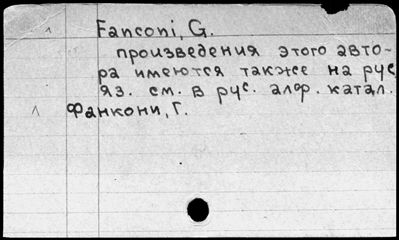 Fanconi, G.
произведения этого авто-
ра имеются также на рус
яз. см. в рус. алф. катал.
Фанкони, Г.